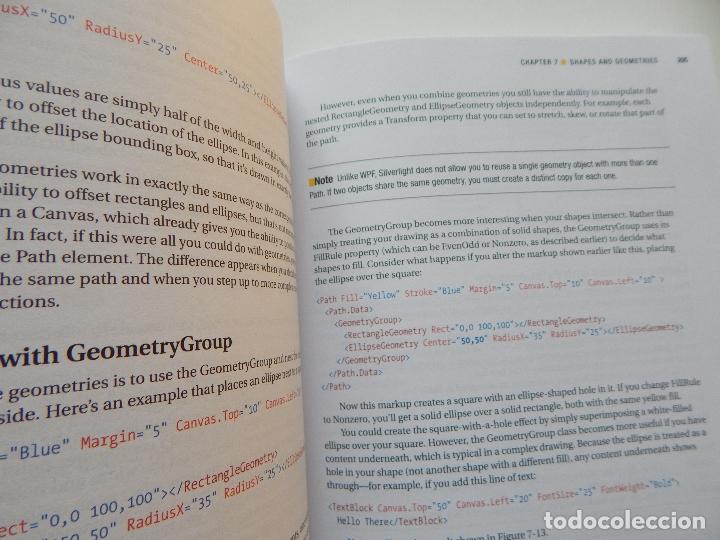 usX="50" RadiusY="25" Center="50,25"></Ellip
us values are simply half of the width and height
y to offset the location of the ellipse. In this example
of the ellipse bounding box, so that it's drawn in exactly
eometries work in exactly the same way as the
bility to offset rectangles and ellipses, but that's not
n a Canvas, which already gives you the ability to
. In fact, if this were all you could do with geometries,
e Path element. The difference appears when you
the same path and when you step up to more complex
ctions.
with GeometryGroup
e geometries is to use the GeometryGroup and nest the
side. Here's an example that places an ellipse next to a
="Blue" Margin="5" Canvas.Top="10" Canvas.Left=
ect="0,0 100,100"></RectangleGeometry>
50,50" RadiusX="35" RadiusY="25"></Ellip
CHAPTER 7 SHAPES AND GEOMETRIES
However, even when you combine geometries you still have the ability to manipulate the
nested RectangleGeometry and EllipseGeometry objects independently. For example, each
geometry provides a Transform property that you can set to stretch, skew, or rotate that part of
the path.
Note Unlike WPF, Silverlight does not allow you to reuse a single geometry object with more than one
Path. If two objects share the same geometry, you must create a distinct copy for each one.
The GeometryGroup becomes more interesting when your shapes intersect. Rather than
simply treating your drawing as a combination of solid shapes, the GeometryGroup uses its
FillRule property (which can be EvenOdd or Nonzero, as described earlier) to decide what
shapes to fill. Consider what happens if you alter the markup shown earlier like this, placing
the ellipse over the square:
<Path Fill="Yellow" Stroke="Blue" Margin="5" Canvas.Top="10" Canvas.Left="10" >
<Path.Data>
<GeometryGroup>
<RectangleGeometry Rect="0,0 100,100"></RectangleGeometry>
<EllipseGeometry Center="50,50" RadiusX="35" RadiusY="25"></EllipseGeometry>
</GeometryGroup>
</Path.Data>
</Path>
Now this markup creates a square with an ellipse-shaped hole in it. If you change FillRule
to Nonzero, you'll get a solid ellipse over a solid rectangle, both with the same yellow fill.
You could create the square-with-a-hole effect by simply superimposing a white-filled
ellipse over your square. However, the GeometryGroup class becomes more useful if you have
content underneath, which is typical in a complex drawing. Because the ellipse is treated as a
hole in your shape (not another shape with a different fill), any content underneath shows
through—for example, if you add this line of text:
<TextBlock Canvas.Top="50" Canvas.Left="20" FontSize="25" FontWeight="Bold">
Hello There</TextBlock>
shown in Figure 7-13.
todocoleccion